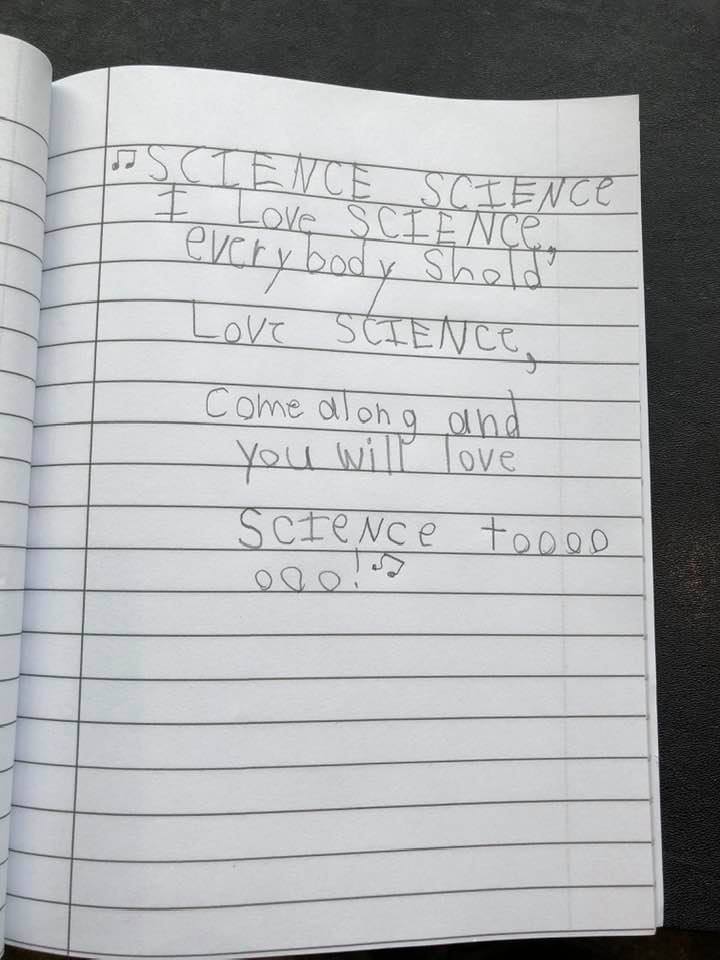 ♫ SCIENCE SCIENCe
I Love SCIENCe,
everybody Shold
Love SCIENCe,
Come along and
you will love
SCIeNCe toooo
ooo! ♫